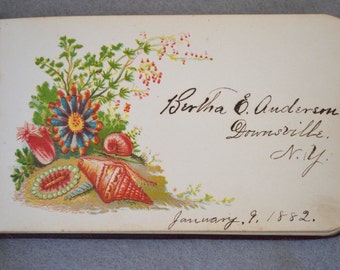 Bertha E. Anderson
Downsville.
N.Y.
January. 9. 1882.